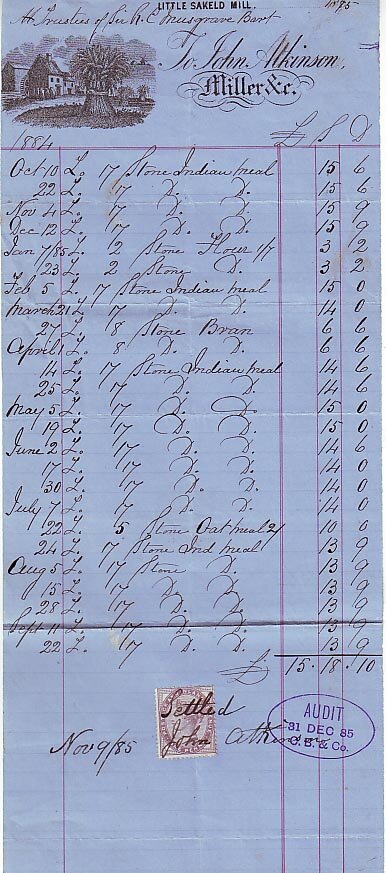 LITTLE SAKELD MILL.
1885
Trusties of Sir R. C Musgrave Bart
To John Atkinson,
Miller &c.
£ S D
1884
Oct 10 L. 17 Stone Indian meal 15 6
22 L. 17 D. D. 15 6
Nov 4 L. 17 D. D. 15 9
Dec 12 L. 17 D. D. 15 9
Jan 7/85 L. 2 Stone Flour 1/7 3 2
23 L. 2 Stone D. 3 2
Feb 5 L. 17 Stone Indian meal 15 0
March 21 L. 17 D. D. 14 0
27 L. 8 Stone Bran 6 6
April 1 L. 8 D. D. 6 6
14 L. 17 Stone Indian meal 14 6
25 L. 17 D. D. 14 6
May 5 L. 17 D. D. 15 0
19 L. 17 D. D. 15 0
June 2 L. 17 D. D. 14 6
17 L. 17 D. D. 14 0
30 L. 17 D. D. 14 0
July 7 L. 17 D. D. 14 0
22 L. 5 Stone Oat meal 2/ 10 0
24 L. 17 Stone Ind meal 13 9
Aug 5 L. 17 Stone D. 13 9
15 L. 17 D. D. 13 9
28 L. 17 D. D. 13 9
Sept 11 L. 17 D. D. 13 9
22 L. 17 D. D. 13 9
£ 15.18.10
Settled
Nov 9/85 John Atkinson
AUDIT
31 DEC 85
C. B. & Co.